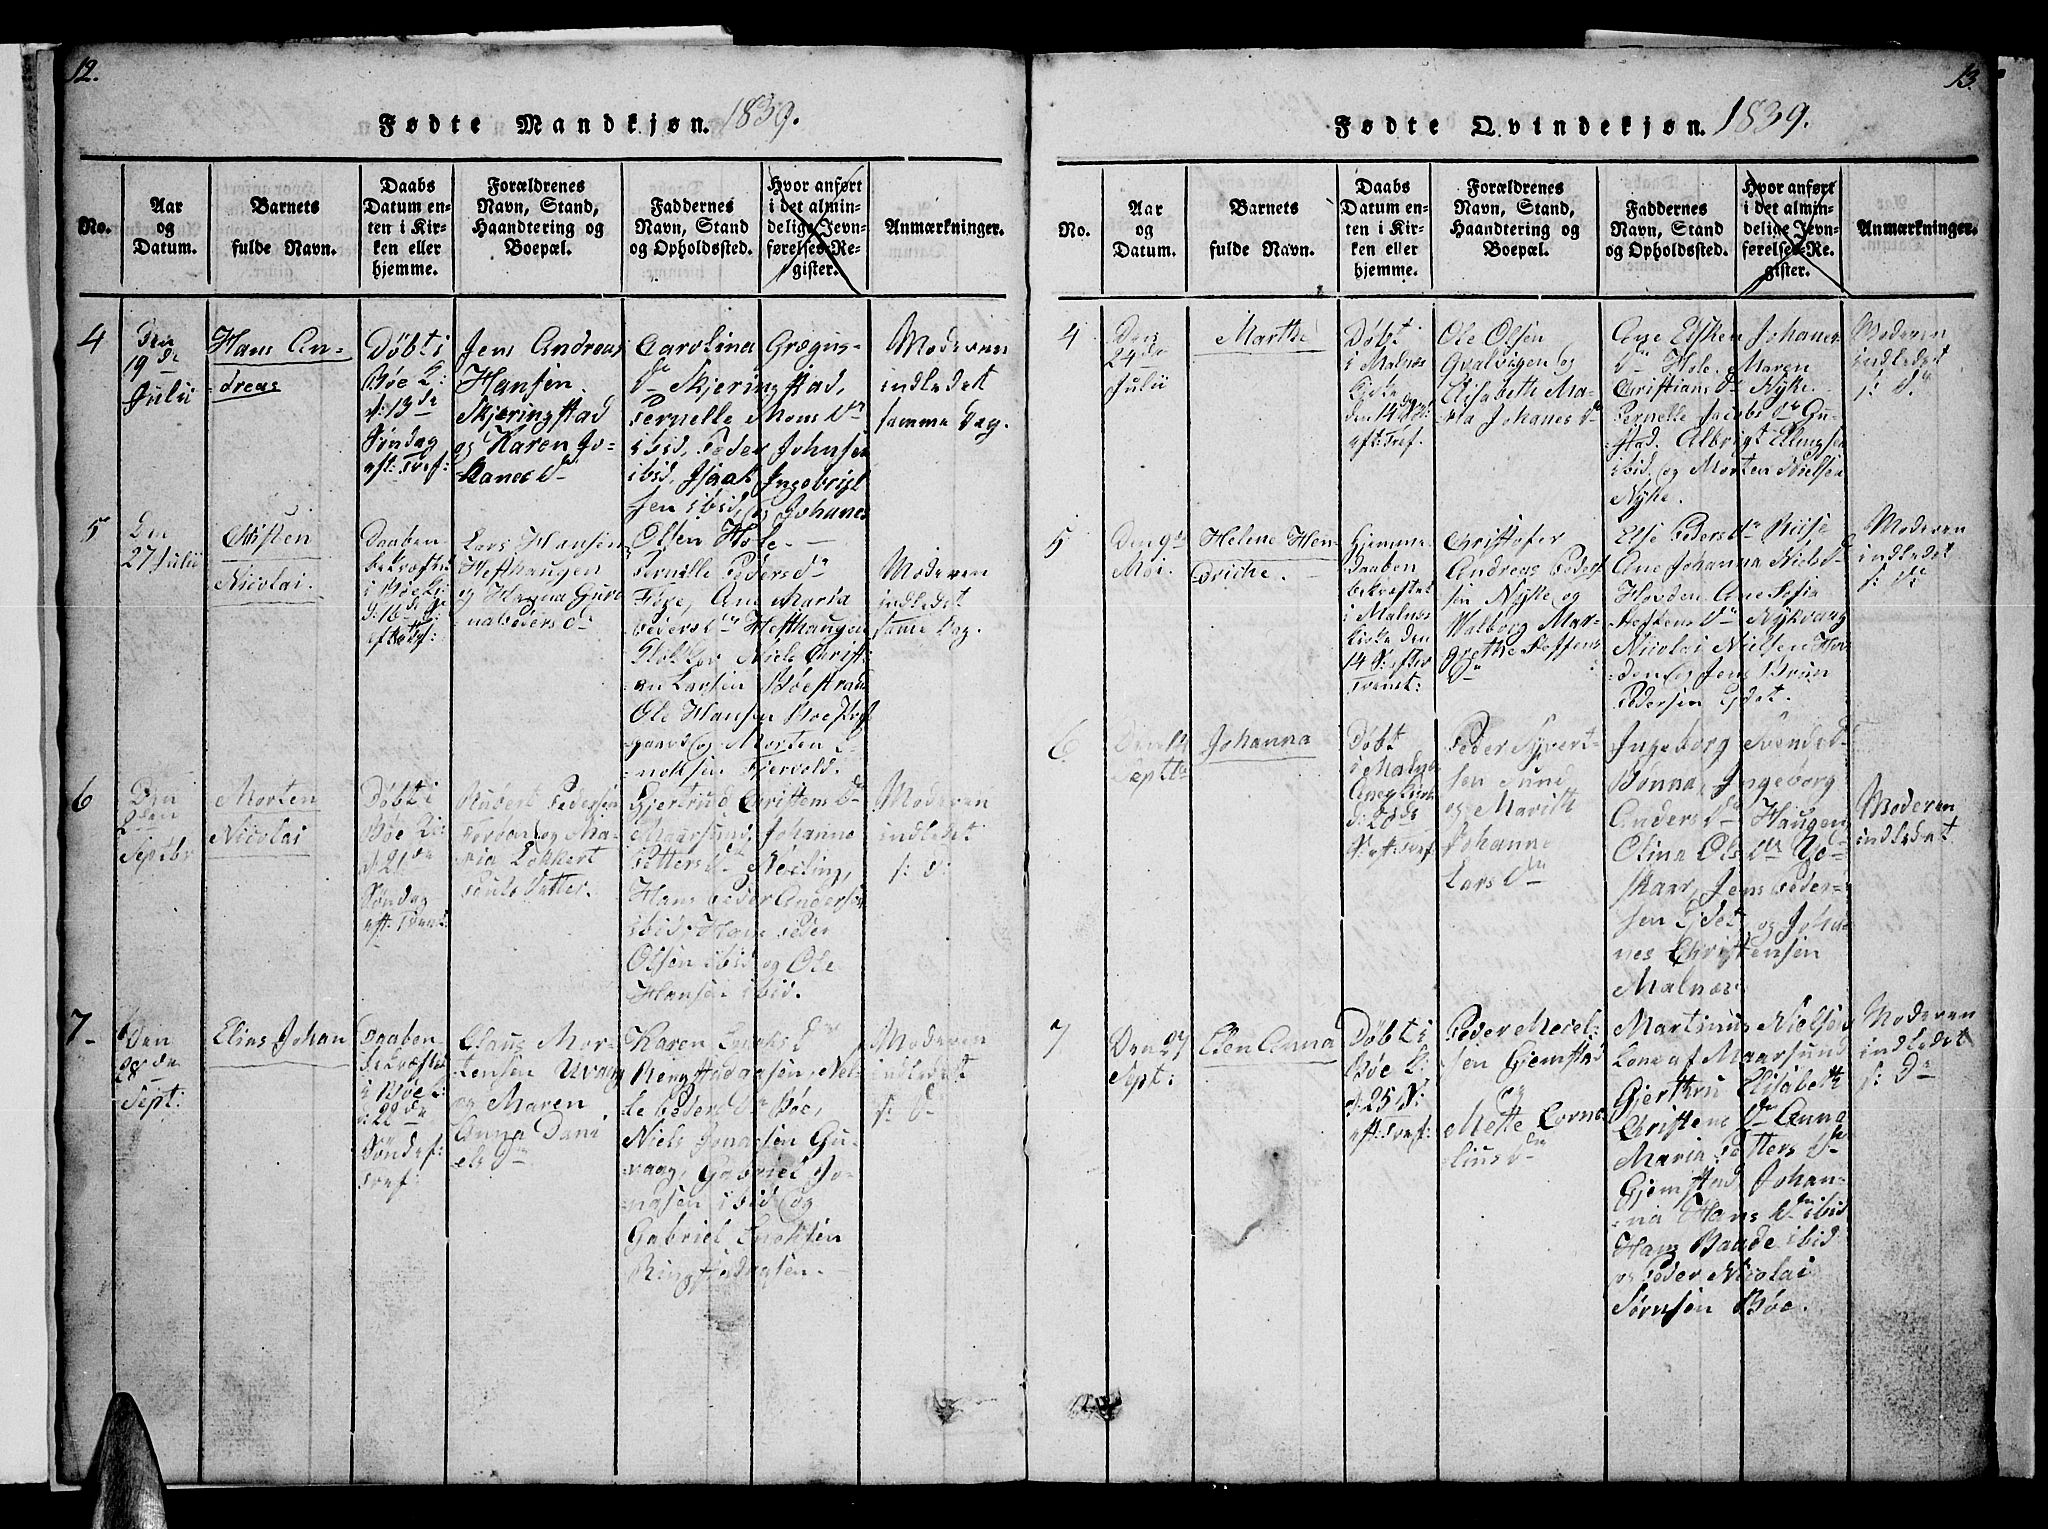 12.
Fødte Mandkjøn. 1839.
No.
Aar
og
Datum.
Barnets
fulde Navn.
Daabs
Datum en-
ten i Kir-
ken eller
hjemme.
Forældrenes
Navn, Stand,
Haandtering og
Boepæl.
Faddernes
Navn, Stand
og Opholdssted.
Hvor anført
i det almin-
delige Jevn-
førelses-Re-
gister.
Anmærkninger.
4
Den
19de
Julii
Hans An-
dreas
Døbt i
Bøe K:
d: 13de
Søndag
eft: Tref:
Jens Andreas
Hansen
Skjeringstad
og Karen Jo-
hanes Dr
Carolina Grægus-
Dr Skjeringstad,
Pernelle Mons Dr
ibid, Peder Johnsen
ibid, Isaak Ingebrigt
sen ibid, og Johanes
Olsen Hole
Moderen
indledet
samme Dag.
5
Den
27 Julii
Christen
Nicolai.
Daaben
bekræftet
i Bøe K:
Lars Hansen
Hefthaugen
og Hanna Gure
na Peders Dr
Pernelle Peders Dr
Føre, Ane Maria
Peders Dr Hefthaugen
Klokker Niels Christi-
an Larsen Bøestrand
Ole Hansen Bøe Præst
gaard og Morten E-
noksen Fjervold.
Moderen
indledet
same Dag.
6
Den
Septbr
Morten
Nicolai
Døbt i
Bøe K:
d 21de
Søndag
eft: Trenit
Rubert Pedersen
Forøen og Ma-
ria Lokkert
Pouls Datter.
Gjertrud Christens Dr
Maarsund, Johanna
Petters Dr
Hans Peder Anderson
ibid, Hans Peder
Olsen ibid og Ole
Hansen ibid.
Moderen
indledet
s: D:
7
Den
28de
Sept:
Elias Johan
Daaben
bekræftet
i Bøe K:
d: 22de
Sønd ef:
Tref:
Claus Mor-
tensen Uvaag
og Maren
Anna Dani
els Dr
Karen Enoks Dr
Ringstadaasen, Nel-
le Peders Dr Bøe,
Niels Jonasen Gu-
vaag, Gabriel Jo-
nasen ibid og
Gabriel Enoksen
Ringstadaasen.
Moderen
indledet
s: D:
13.
Fødte Qvindekjøn. 1839.
No.
Aar
og
Datum.
Barnets
fulde Navn.
Daabs
Datum en-
ten i Kir-
ken eller
hjemme.
Forældrenes
Navn, Stand,
Haandtering og
Boepæl.
Faddernes
Navn, Stand
og Opholdssted.
Hvor anført
i det almin-
delige Jevn-
førelses-Re-
gister.
Anmærkninger.
4
Den
24de
Julii
Marthe
Døbt
i Malnes
Kirke
den 14de S:
eft: Tref.
Ole Olsen
Qvalvigen og
Elisabeth Ma-
ria Johanes Dr
Ane Elsken Johanes
Dr Hole, Maren
Christians Dr Nyke.
Pernelle Jacobs Dr Gu-
stad, Albrigt Ellingsen
ibid og Morten Nielsen
Nyke.
Moderen
indledet
s: D:
5
Den 9de
Mai
Helene Hen-
driche.
Hjemme
daaben
bekræftet
i Malnes
Kirke den
14 S: efter
Trenit:
Christofer
Andreas Peder
sen Nyke og
Walborg Mar-
grethe Steffens
Dr
Else Peders Dr Reise
Ane Johanna Niels Dr
Hovden, Ane Sofia
Steffens Dr Nykvaag
Nicolai Nielsen Hov-
den og Jens Brun
Pedersen Eidet.
Moderen
indledet
s: D:
6
Den 14
Septbr
Johanna
Døbt
i Malnæs
Anex Kirke
d: 20de
S: eft: Tref
Peder Syvert-
sen Sund
og Marith
Johanna
Lars Dr
Ingeborg Svends Dr
Bønna, Ingeborg
Anders Dr Haugen
Olina Ols Dr
skaar, Jens Peder-
sen Eidet og Joha-
nes Christensen
Malnæs
Moderen
indledet
7
Den 27
Sept:
Elen Anna
Døbt i
Bøe K:
d: 25 S:
eft: Tref:
Peder Merel-
sen Gjemstad
og
Mette Corne
lius Dr
Martinus Nielsøn
Lona af Maarsund
Gjerthru Elisabeth
Christens Dr Anna
Maria Petters Dr
Gjemstad Johan-
na Hans Dr ibid
Hans Baade ibid
og Peder Nicolai
Sørensen Bøe.
Moderen
indledet
s: Dr